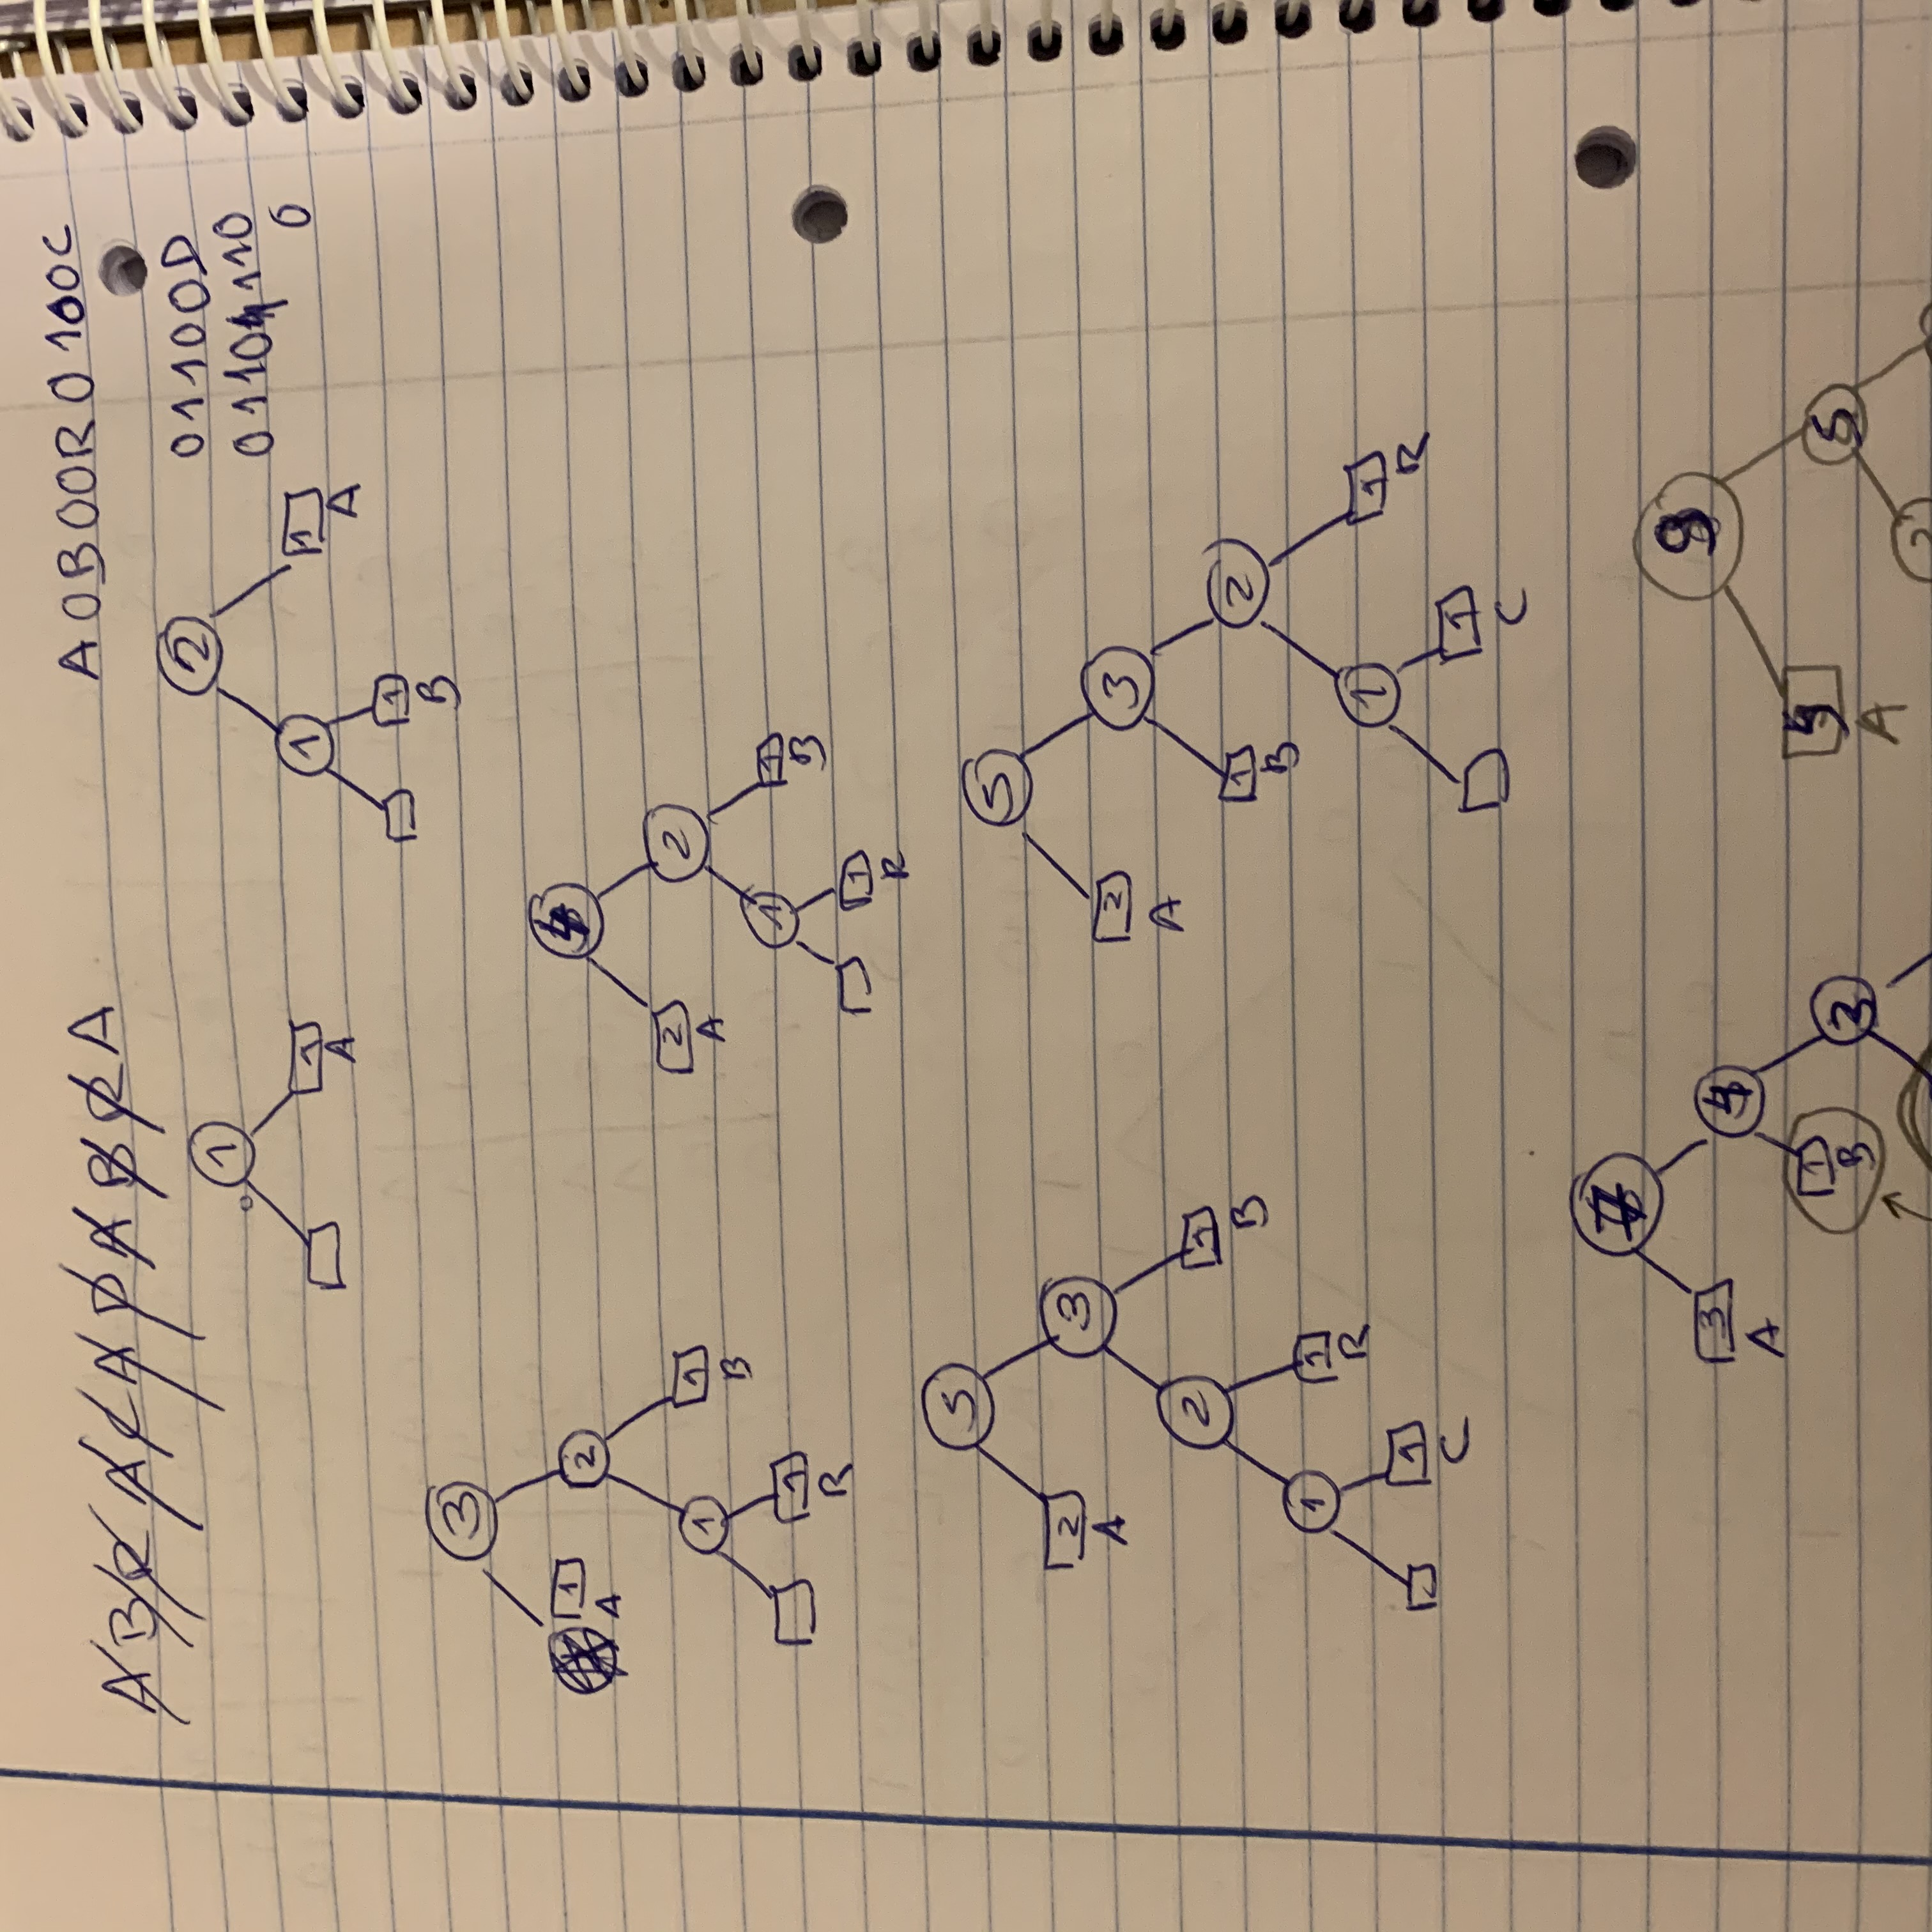 ABRACADABRA
A0B00R0100C
01100D
0110 110
0
1
1
A
2
1
1
A
1
B
3
1
A
2
1
1
B
1
R
4
2
A
2
1
1
B
1
R
5
2
A
3
2
1
B
1
1
R
1
C
5
2
A
3
1
B
2
1
1
R
1
C
7
3
A
4
1
B
3
9
A
5
2